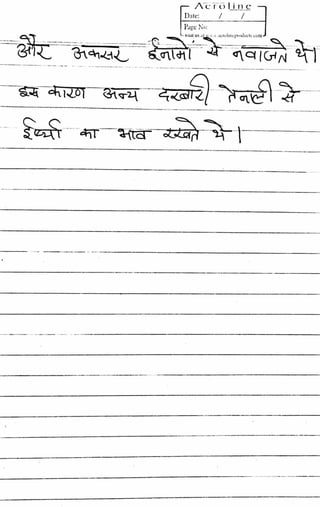 Acroline
Date: / /
Page No:
और अकसर ईनामों से नवाजते थे।
इस कारण अन्य दरबारी तेनाली से
ईर्ष्या का भाव रखते थे।